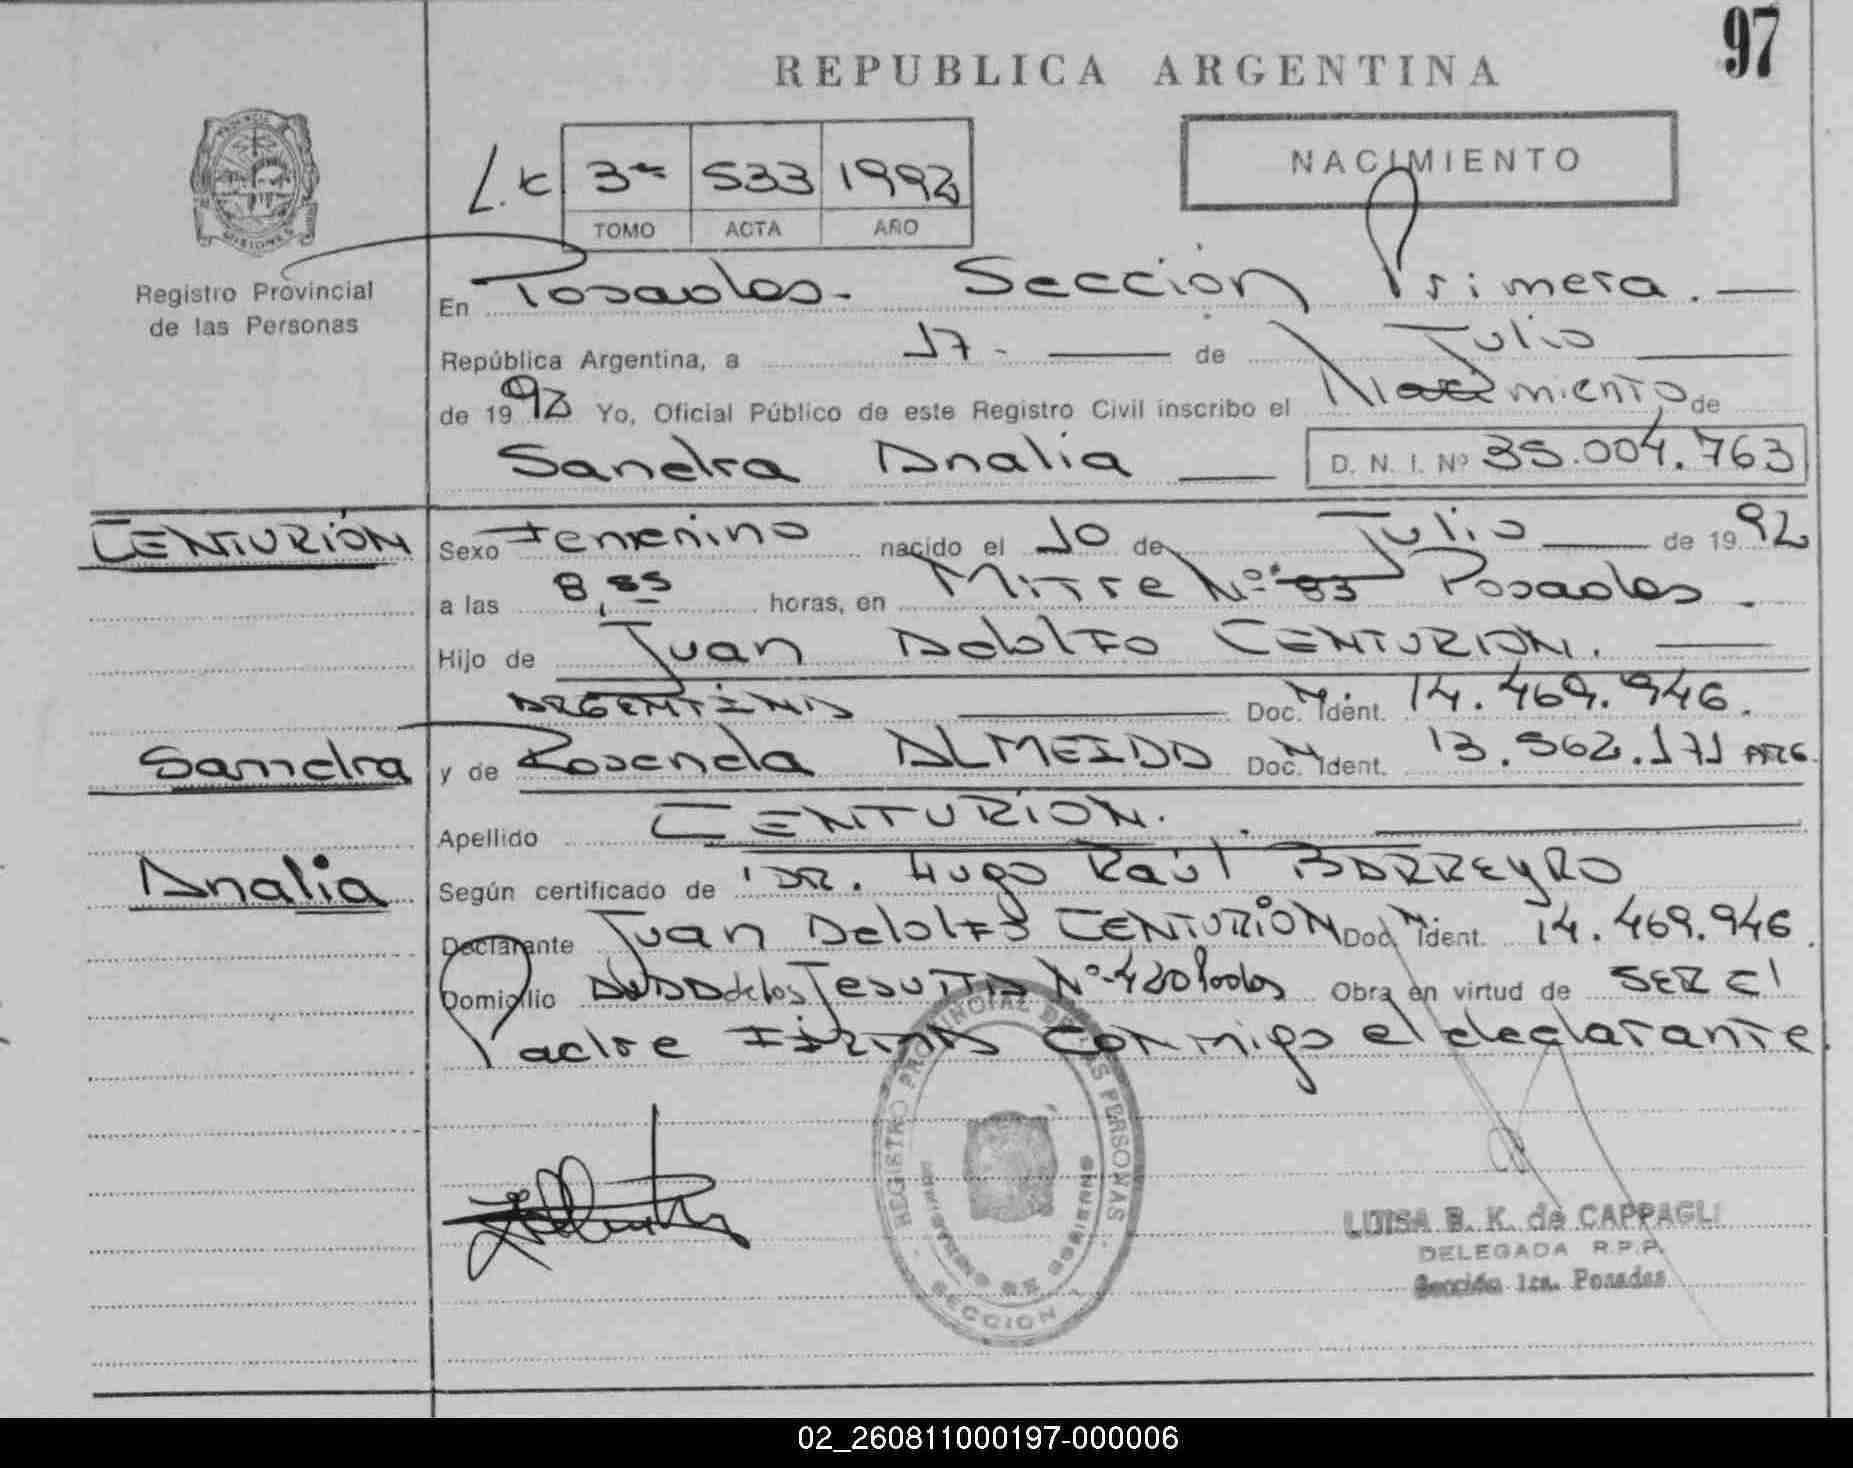 97
REPUBLICA ARGENTINA
NACIMIENTO
3ro 533 1992
TOMO ACTA AÑO
PROVINCIA DE MISIONES
Registro Provincial
de las Personas
En Posadas. Sección Primera.
República Argentina, a 17 de Julio
de 1992 Yo, Oficial Público de este Registro Civil inscribo el Nacimiento de
Sandra Analia D. N. I. Nº 35.004.763
CENTURIÓN
Sexo Femenino nacido el 10 de Julio de 1992
a las 8,55 horas, en Mitre Nº 93 Posadas.
Hijo de Juan Adolfo CENTURION.
ARGENTINO Doc. N Ident. 14.469.946.
Sandra
y de Rosenda ALMEIDA Doc. N Ident. 13.562.171 ARG.
Apellido CENTURION.
Analia
Según certificado de DR. Hugo Raúl BARREYRO
Declarante Juan Adolfo CENTURIÓN Doc. N Ident. 14.469.946.
Domicilio AVDA de los Jesuitas Nº 420 Pdas Obra en virtud de SER el
Padre FIRMA conmigo el declarante.
REGISTRO PROVINCIAL DE LAS PERSONAS
MINISTERIO DE GOBIERNO
SECCION
LUISA B. K. de CAPPAGLI
DELEGADA R.P.P.
Sección 1ra. Posadas
02_260811000197-000006